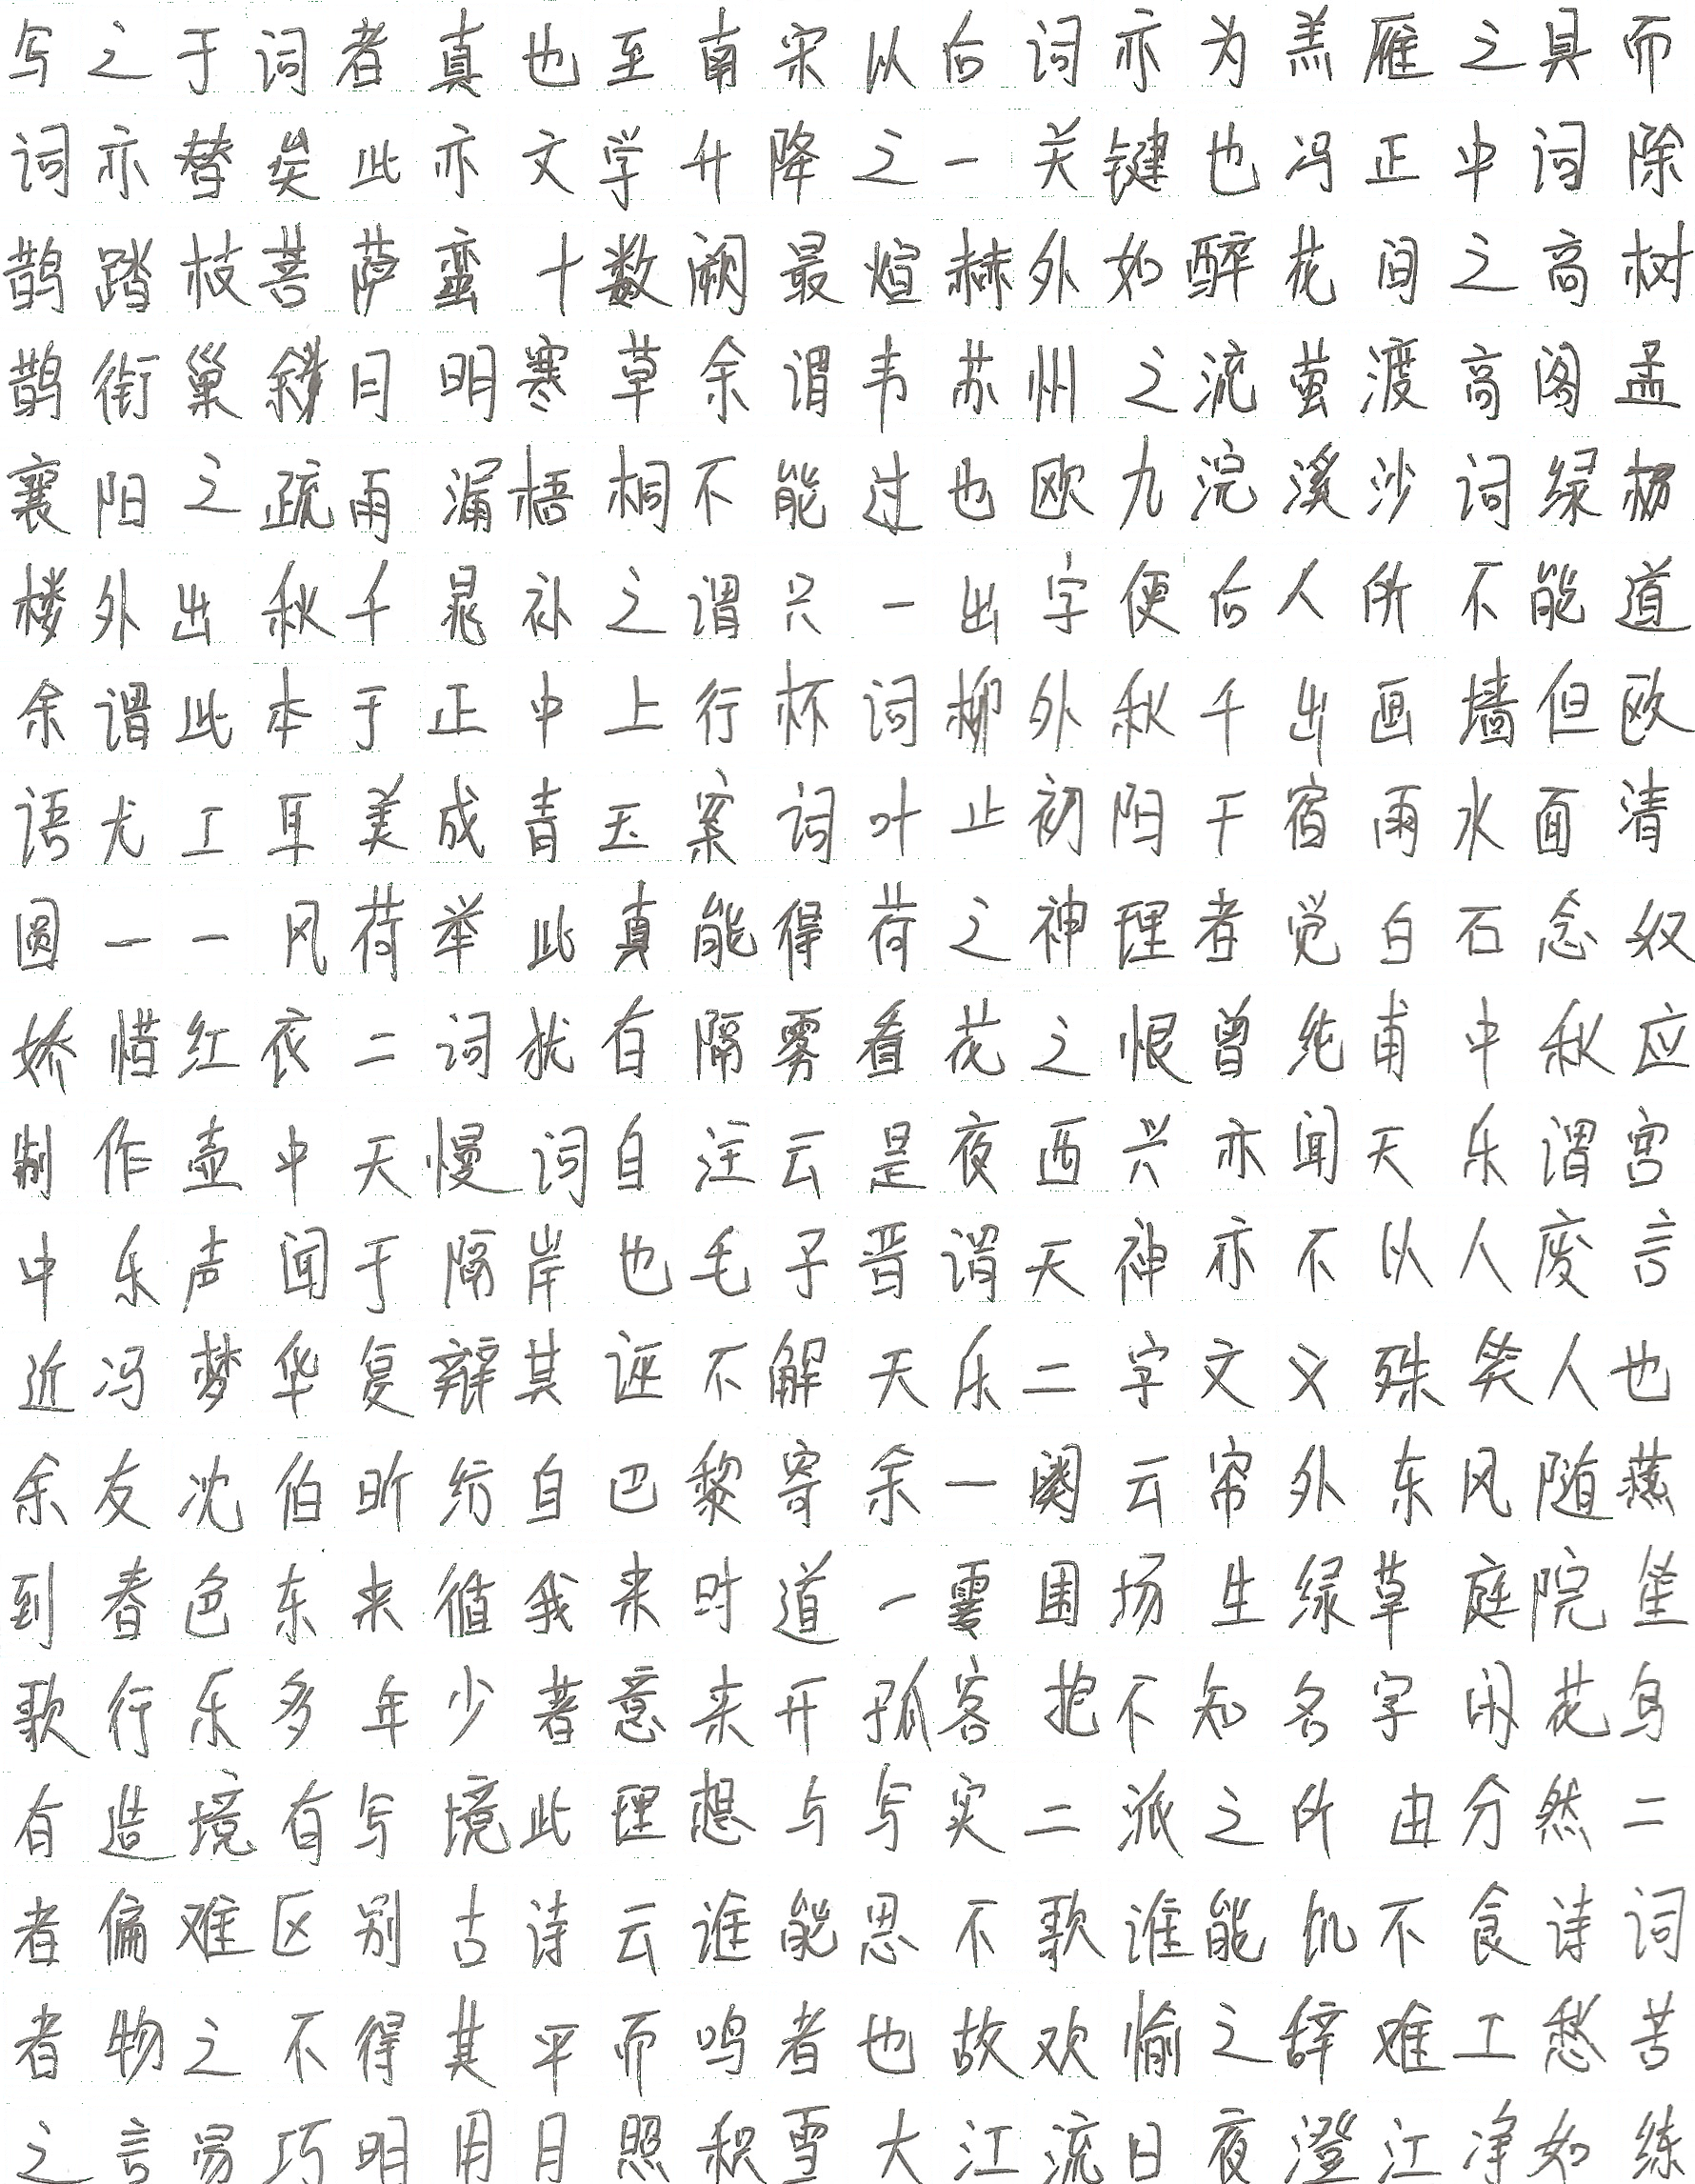 写之于词者真也至南宋以后词亦为羔雁之具而
词亦替矣此亦文学升降之一关键也冯正中词除
鹊踏枝菩萨蛮十数阕最煊赫外如醉花间之高树
鹊衔巢斜月明寒草余谓韦苏州之流萤渡高阁孟
襄阳之疏雨漏梧桐不能过也欧九浣溪沙词绿杨
楼外出秋千晁补之谓只一出字便后人所不能道
余谓此本于正中上行杯词柳外秋千出画墙但欧
语尤工耳美成青玉案词叶止初阳干宿雨水面清
圆一一风荷举此真能得荷之神理者觉白石念奴
娇惜红衣二词犹有隔雾看花之恨曾纯甫中秋应
制作壶中天慢词自注云是夜西兴亦闻天乐谓宫
中乐声闻于隔岸也毛子晋谓天神亦不以人废言
近冯梦华复辩其诬不解天乐二字文义殊笑人也
余友沈伯昕纺自巴黎寄余一阕云帘外东风随燕
到春色东来循我来时道一霎围场生绿草庭院笙
歌行乐多年少著意来开孤客抱不知名字闲花鸟
有造境有写境此理想与写实二派之所由分然二
者偏难区别古诗云谁能思不歌谁能饥不食诗词
者物之不得其平而鸣者也故欢愉之辞难工愁苦
之言易巧明用月照积雪大江流日夜澄江净如练